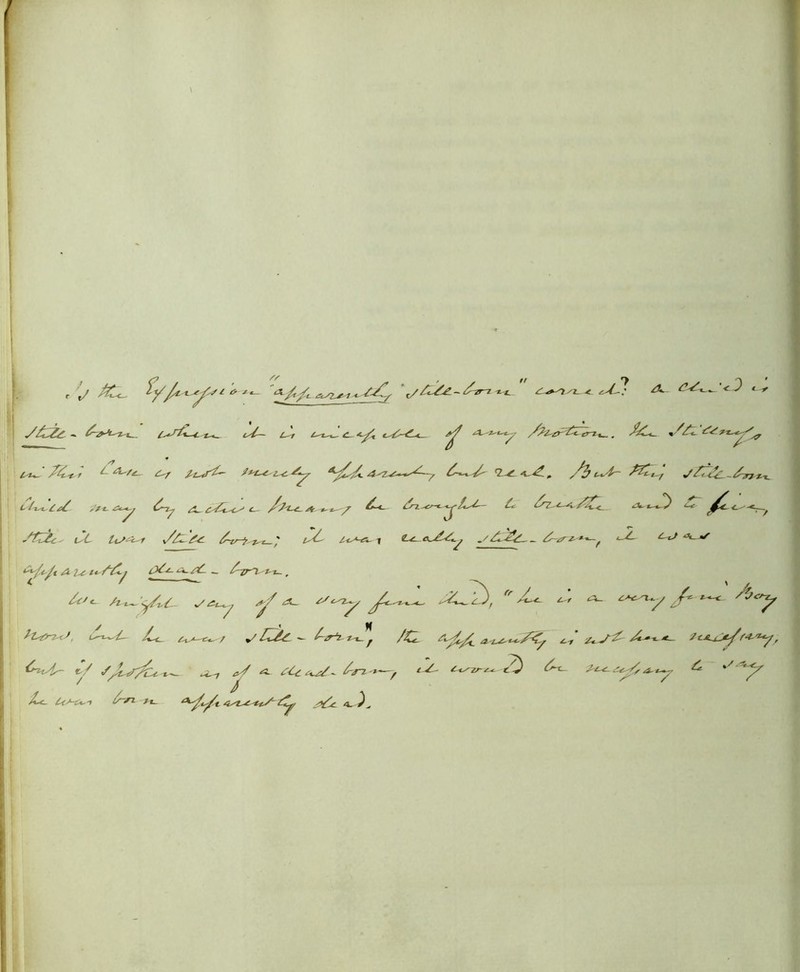 Is the Expression "apparently still-born" correct? A Child is
still-born when it is incapable of any Motion. The Stillness
in this Case is not merely apparent, but real. But this still-born
Child may by active means be brought to breathe and to live,
Still it was still born; it was really still-born, it was
apparently dead-born.
We might say of a very fine Child, "he is a very fine Boy
Now, but he was still-born", the apparently is not here necessary,
but if spoken as of a dead-born, it would be necessary to say
he was born apparently dead.